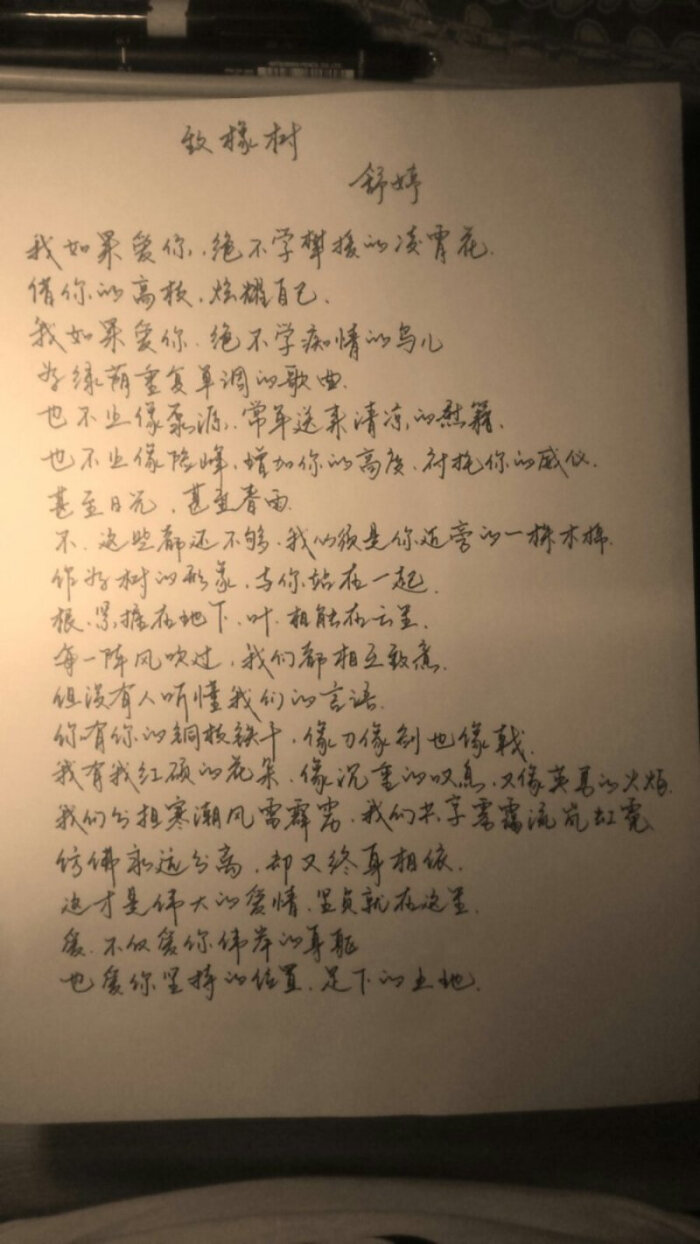 致橡树
舒婷
我如果爱你,绝不学攀援的凌霄花.
借你的高枝,炫耀自己.
我如果爱你.绝不学痴情的鸟儿
为绿荫重复单调的歌曲.
也不止像泉源.常年送来清凉的慰籍.
也不止像险峰,增加你的高度.衬托你的威仪.
甚至日光,甚至春雨.
不.这些都还不够.我必须是你近旁的一株木棉.
作为树的形象,与你站在一起.
根.紧握在地下.叶.相触在云里.
每一阵风吹过,我们都相互致意.
但没有人听懂我们的言语.
你有你的铜枝铁干,像刀像剑也像戟.
我有我红硕的花朵.像沉重的叹息,又像英勇的火炬.
我们分担寒潮风雷霹雳.我们共享雾霭流岚虹霓.
仿佛永远分离,却又终身相依.
这才是伟大的爱情.坚贞就在这里.
爱.不仅爱你伟岸的身躯
也爱你坚持的位置.足下的土地.